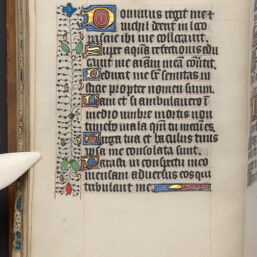 Dominus regit me et
nichil deerit in loco
pascue ibi me collocavit.
Super aquã refectionis edu
cavit me aĩam meã cõvertit.
Deduxit me sup semitas iu
sticie propter nomen suum.
Nam et si ambulavero ĩ
medio umbre mortis non
timebo mala qm̃ tu mecũ es.
Virga tua et baculus tuus
ipsa me consolata sunt.
Parasti in conspectu meo
mensam adversus eos qui
tribulant me